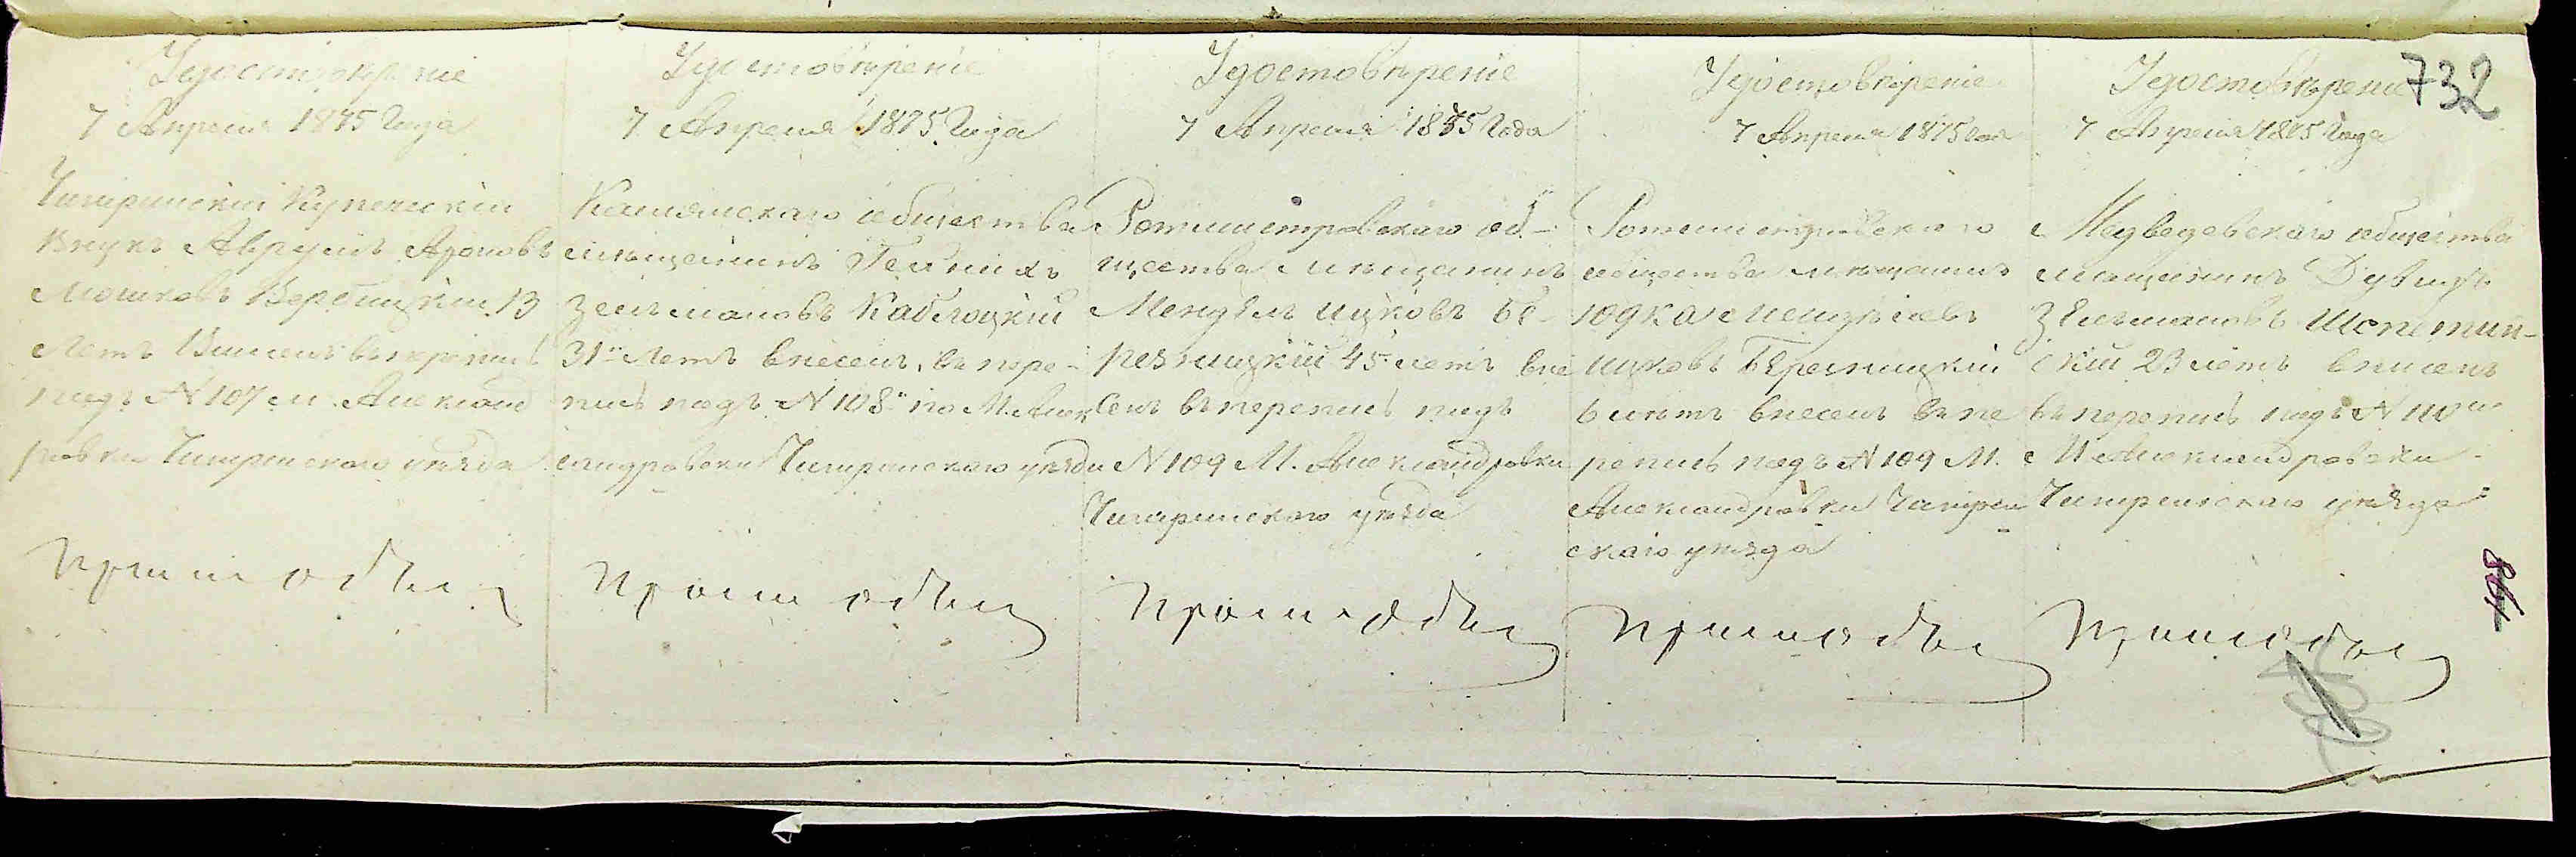 732
Удостовѣреніе
7 Апреля 1875 Года
Чигиринскій Купеческій
Внукъ Аврумъ Ароновъ
Мошковъ Вербицкій 13
Летъ Внисенъ въ перепись
подъ N 107 м. Александ
ровки Чигиринскаго уѣзда
Удостовѣреніе
7 Апреля 1875 Года
Каменскаго общества
мѣщанинъ
Зельмановъ Каблоцкій
31 Летъ внесенъ, въ пере-
пись подъ N 108 по М. Алек
сандровки Чигиринскаго уѣзда
Удостовѣреніе
7 Апреля 1875 Года
Ротмистровскаго об-
щества мѣщанинъ
Мендель Ицковъ Бе-
резницкій 45 летъ вне
сенъ въ перепись подъ
N 109 М. Александровки
Чигиринскаго уѣзда
Удостовѣреніе
7 Апреля 1875 Года
Ротмистровскаго
общества мѣщанинъ
Юдка
Ицковъ Березницкій
6 лѣтъ внесенъ въ пе
репись подъ N 109 М.
Александровки Чигирин
скаго уѣзда
Удостовѣреніе
7 Апреля 1875 Года
Медведевскаго общества
мещанинъ Дувидъ
Зельмановъ Шопетин-
скій 23 летъ внисенъ
въ перепись подъ N 110
М Александровки
Чигиринскаго уѣзда